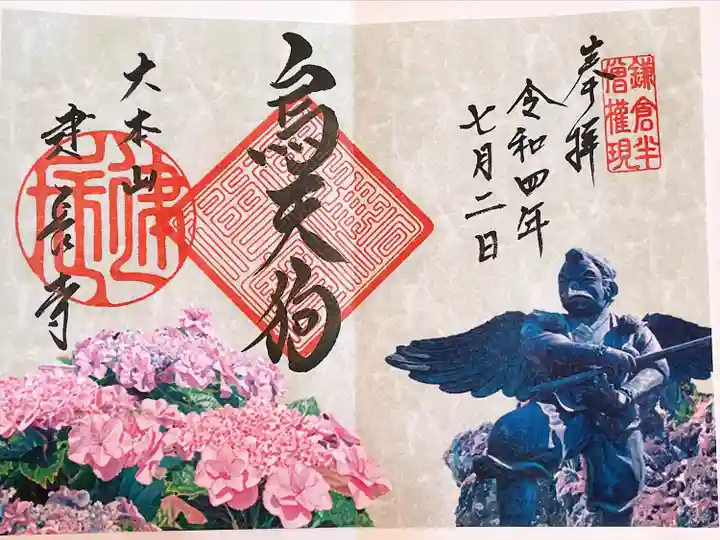 鎌倉半
僧權現
奉拝
令和四年
七月二日
烏天狗
大本山
建長寺